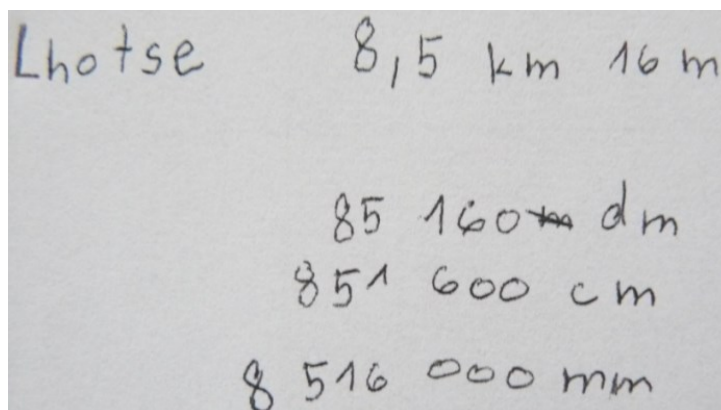 Lhotse 8,5 km 16 m
85 160 dm
851 600 cm
8 516 000 mm